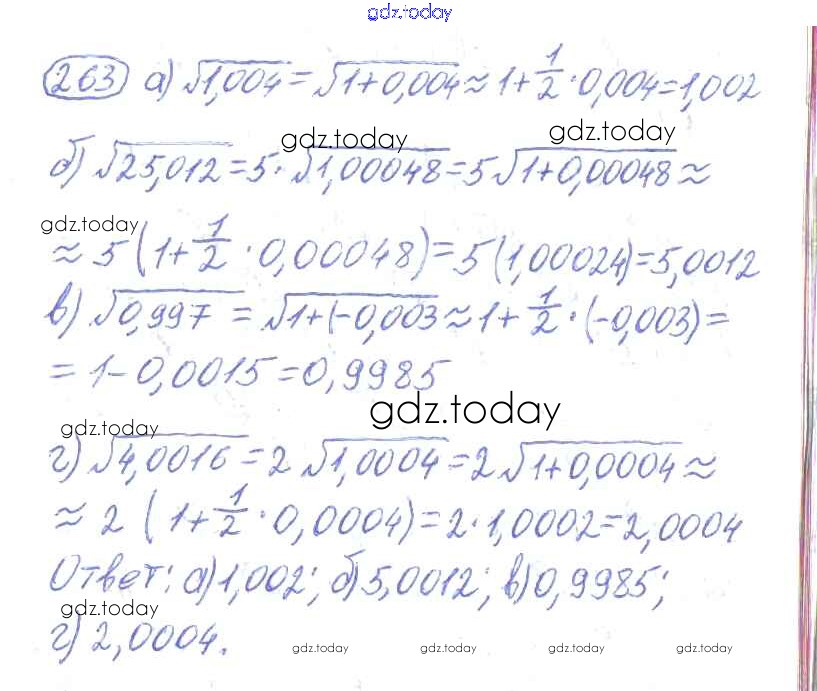 gdz.today
263 а) √1,004 = √1+0,004 ≈ 1+1/2·0,004=1,002
gdz.today gdz.today
б) √25,012 = 5·√1,00048 = 5√1+0,00048 ≈
gdz.today
≈ 5(1+1/2·0,00048)=5(1,00024)=5,0012
в) √0,997 = √1+(-0,003 ≈ 1+1/2·(-0,003)=
= 1-0,0015=0,9985
gdz.today
gdz.today
г) √4,0016 = 2√1,0004 = 2√1+0,0004 ≈
≈ 2(1+1/2·0,0004)=2·1,0002=2,0004
Ответ: а)1,002; б)5,0012; в)0,9985;
gdz.today
г)2,0004.
gdz.today gdz.today gdz.today gdz.today